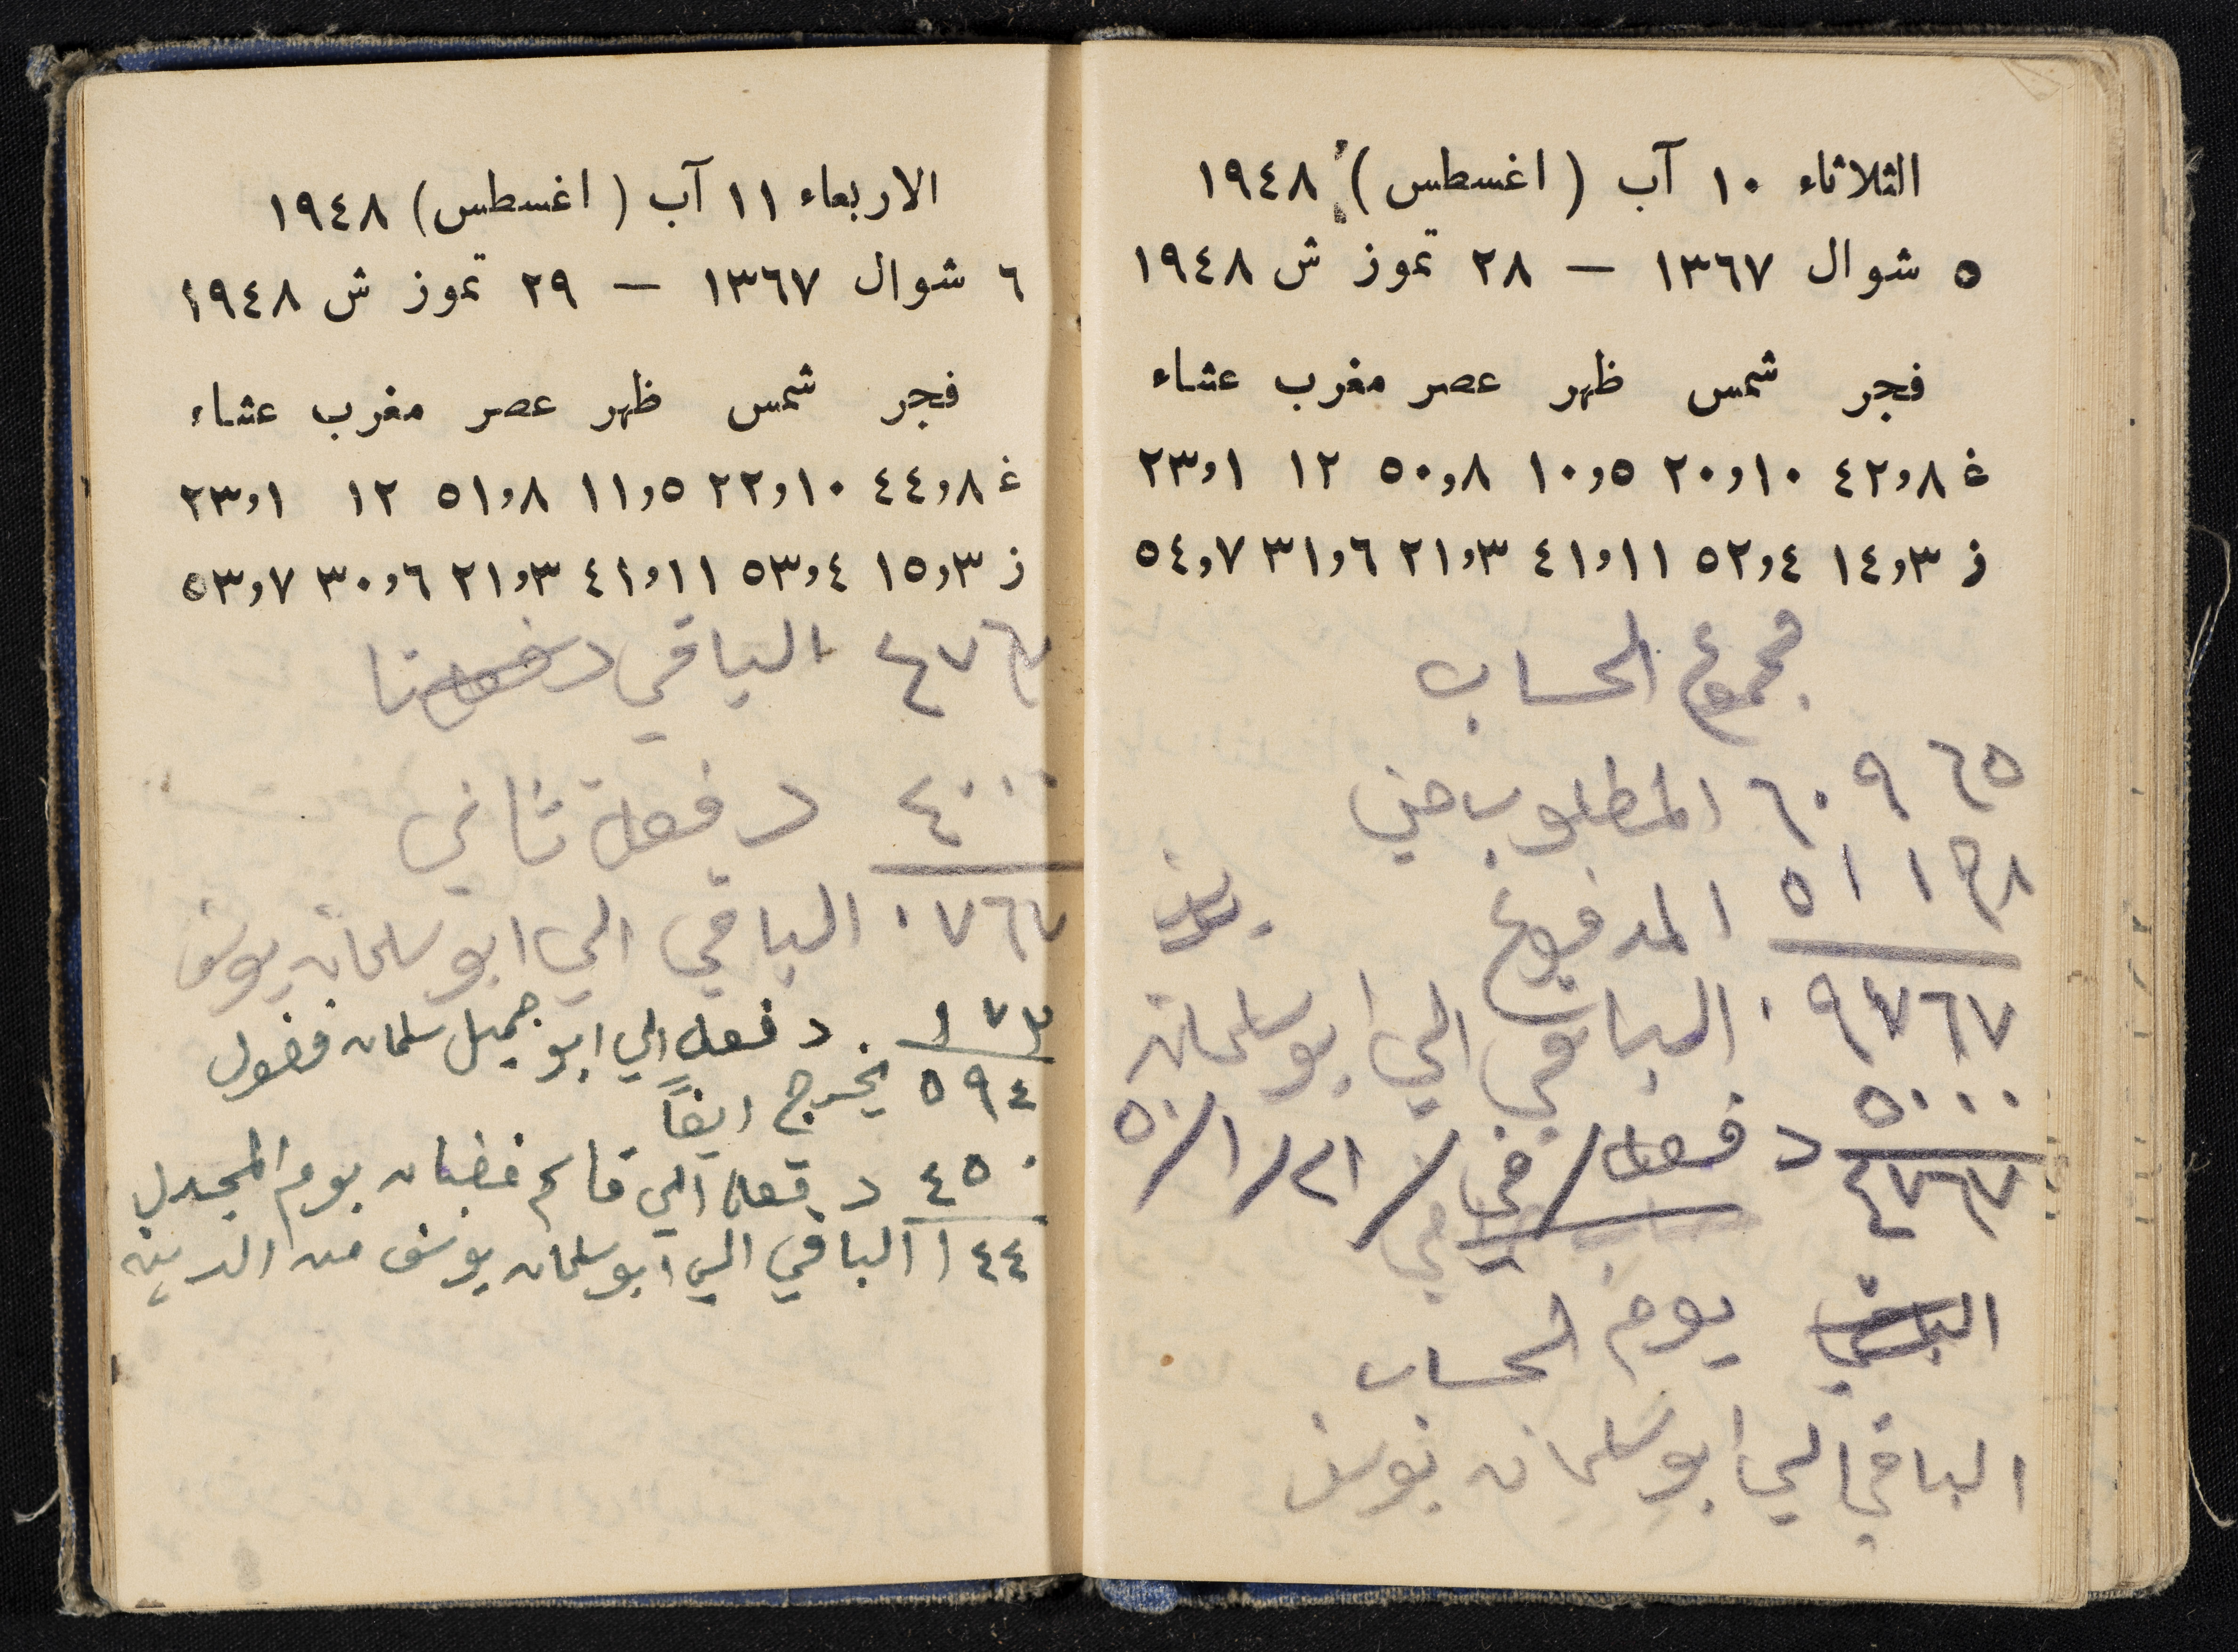 الثلاثاء ١٠ آب ( اغسطس ) ١٩٤٨
٥ شوال ١٣٦٧ — ٢٨ تموز ش ١٩٤٨
فجر شمس ظهر عصر مغرب عشاء
غ ٤٢,٨ ٢٠,١٠ ١٠,٥ ٥٠,٨ ١٢ ٢٣,١
ز ١٤,٣ ٥٢,٤ ٤١,١١ ٢١,٣ ٣١,٦ ٥٤,٧
مجموع الحساب
٦٠٩٦٥ المطلوب مني
المدفوع
٠٩٧٦٧ الباقي الي ابو سلمان
٥٠٠٠
٤٧٦٧ دفعه / في / ٢١ / ١ / ٥٠
الباقي يوم الحساب
الباقي الي ابو سلمان يوسف
الاربعاء ١١ آب ( اغسطس ) ١٩٤٨
٦ شوال ١٣٦٧ — ٢٩ تموز ش ١٩٤٨
فجر شمس ظهر عصر مغرب عشاء
غ ٤٤,٨ ٢٢,١٠ ١١,٥ ٥١,٨ ١٢ ٢٣,١
ز ١٥,٣ ٥٣,٤ ٤١,١١ ٢١,٣ ٣٠,٦ ٥٣,٧
٤٧٦٧ الباقي
٤٠٠٠ دفعه ثاني
٠٧٦٧ الباقي الي ابو سلمان يوسف
دفعه الي ابو جميل سلمان
٥٩٤ يخرج ايضاً
٤٥٠ دفعه الي قاسم غضبان يوم المجدل
١٤٤ الباقي الي ابو سلمان يوسف من الدينه